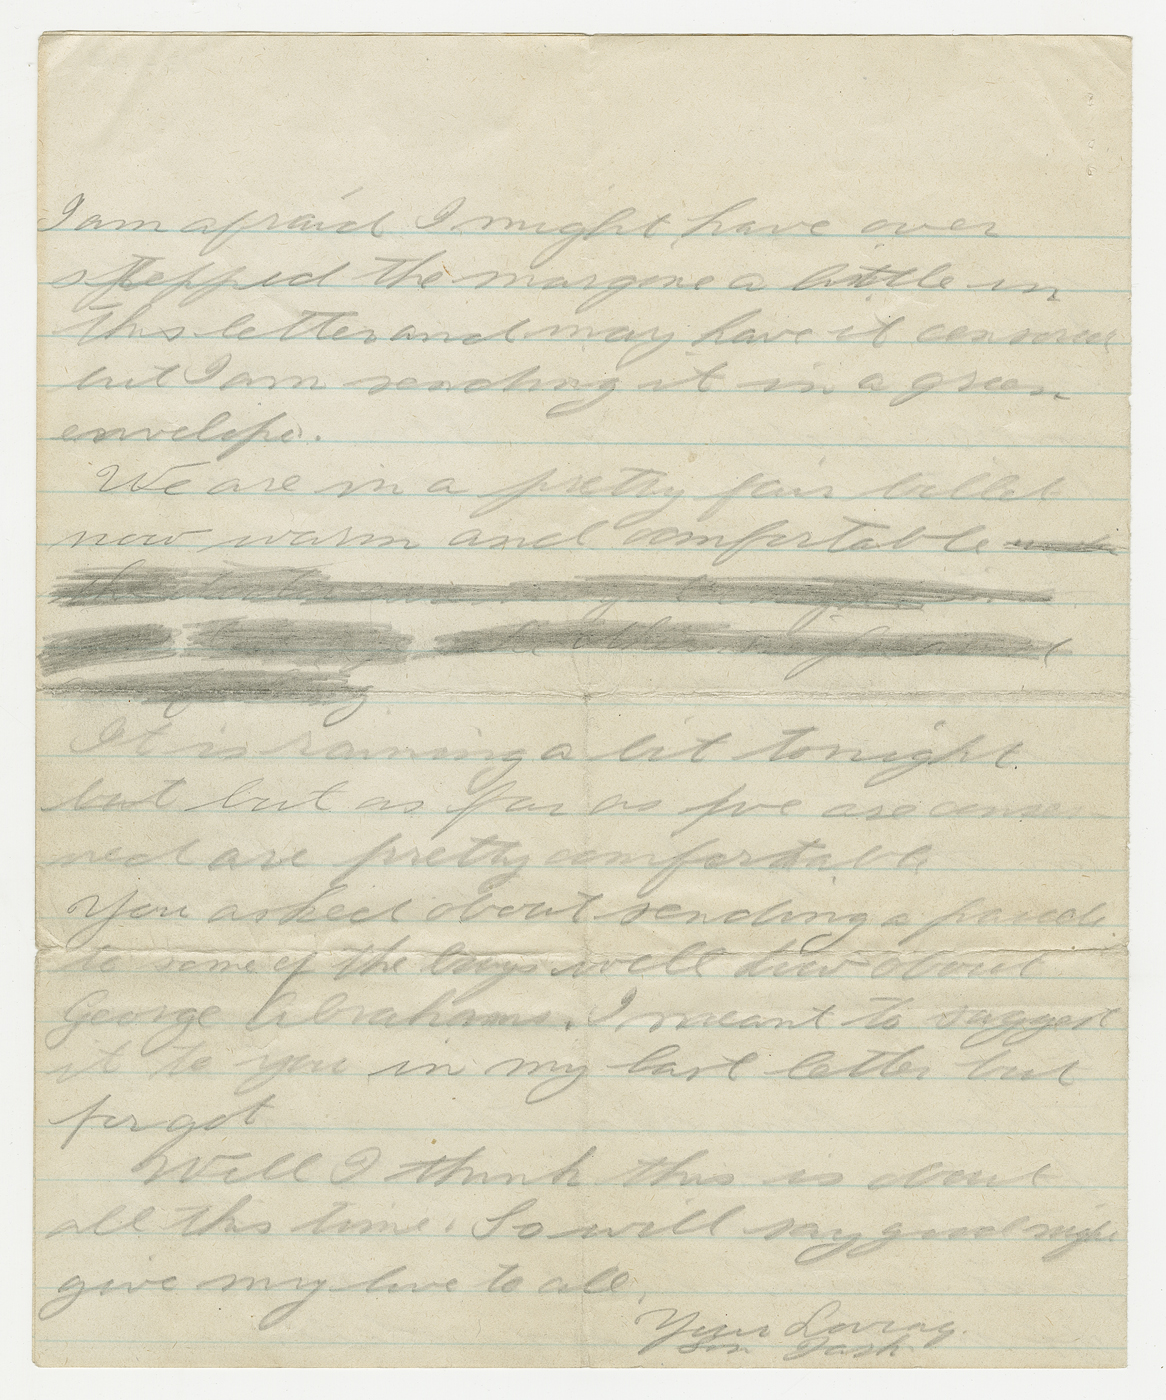 I am afraid I might have over
stepped the margine a little in
this letter and may have it censored
but I am sending it in a green
envelope.
We are in a pretty fair billet
now warm and comfortable
the
the other night and
It is raining a bit tonight.
but but as far as we are concer
ned are pretty comfortable
You asked about sending a parcel
to some of the boys well how about
George Abrahams. I meant to suggest
it to you in my last letter but
forgot
Well I think this is about
all this time. So will say good night
give my love to all.
Your Loving
Son Dash